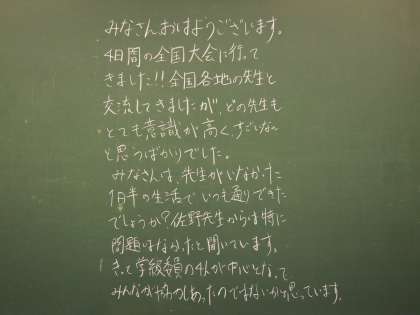 みなさんおはようございます。
4日間の全国大会に行って
きました!!全国各地の先生と
交流してきましたが、どの先生も
とても意識が高く、すごいな〜
と思うばかりでした。
みなさんは、先生がいなかった
1日半の生活でいつも通りできた
でしょうか?佐野先生からは特に
問題はなかったと聞いています。
きっと学級委員の4人が中心となって
みんなが のではないかと思っています。